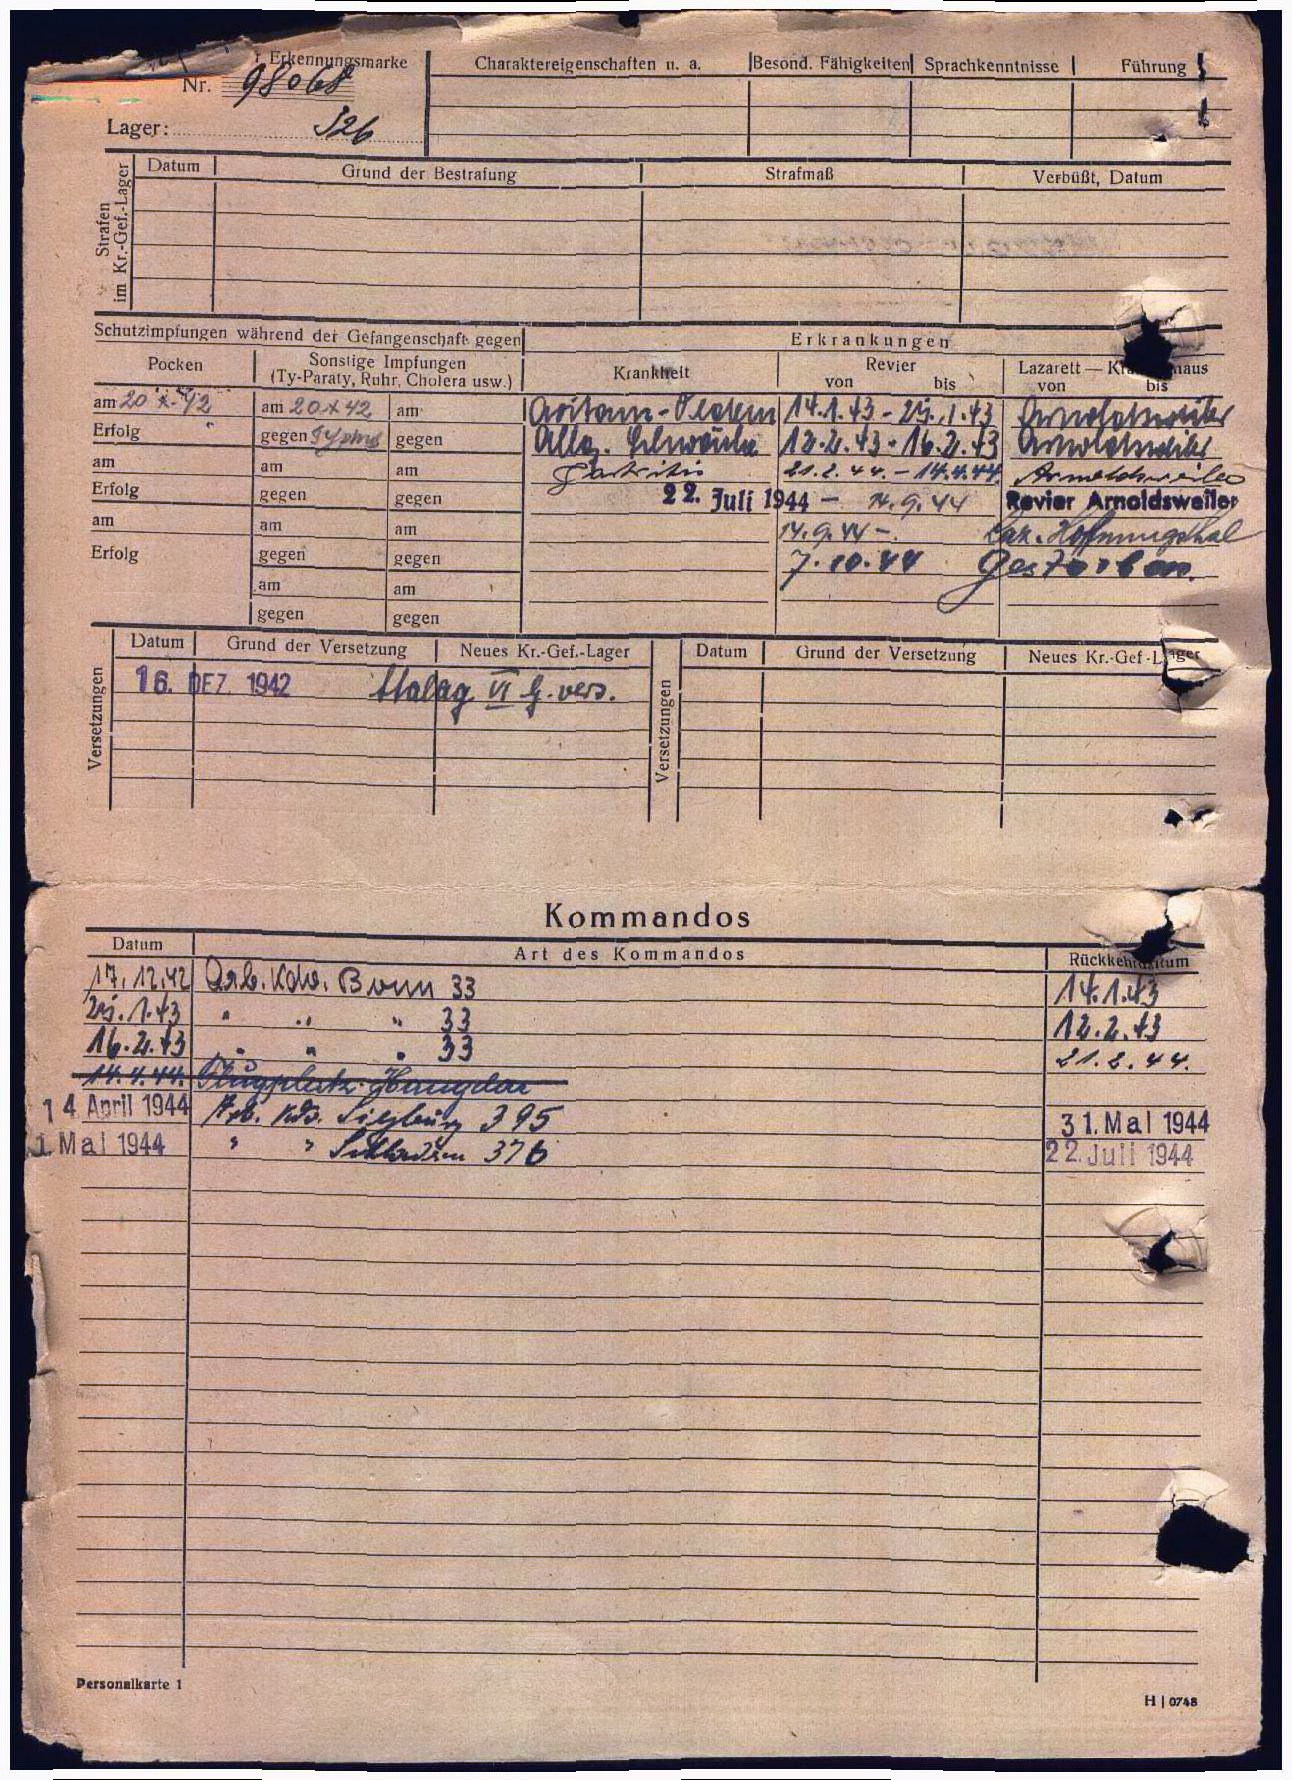 r Erkennungsmarke
Nr. 98068
Lager: 326
Charaktereigenschaften u. a. Besond. Fähigkeiten Sprachkenntnisse Führung
Strafen im Kr.-Gef.-Lager
Datum Grund der Bestrafung Strafmaß Verbüßt, Datum
Schutzimpfungen während der Gefangenschaft gegen
Erkrankungen
Pocken Sonstige Impfungen Krankheit Revier Lazarett — Kr haus
(Ty-Paraty, Ruhr, Cholera usw.) von bis von bis
am 20 X. 42 am 20 X 42 am 14.1.43 - 25.1.43 Arnoldsweiler
Erfolg gegen Typhus gegen Allg. Schwäche 12.2.43 - 16.2.43 Arnoldsweiler
am am am Gastritis 21.2.44. - 14.4.44. Arnoldsweiler
Erfolg gegen gegen 22. Juli 1944 - 14.9.44 Revier Arnoldsweiler
am am am 14.9.44 -. Laz. Hoffnungsthal
Erfolg gegen gegen 7.10.44 Gestorben.
am am
gegen gegen
Versetzungen
Datum Grund der Versetzung Neues Kr.-Gef.-Lager
16. DEZ. 1942 Stalag VI G. vers.
Versetzungen
Datum Grund der Versetzung Neues Kr.-Gef.-Lager
Kommandos
Datum Art des Kommandos Rückkehrdatum
17.12.42 Arb. Kdo. Bonn 33 14.1.43
25.1.43 " " " 33 12.2.43
16.2.43 " " " 33 21.2.44.
14.4.44. Flugplatz Hangelar
14 April 1944 Arb. Kdo. Siegburg 395 31. Mai 1944
1. Mai 1944 " " Schladern 376 22. Juli 1944
Personalkarte 1
H | 0748